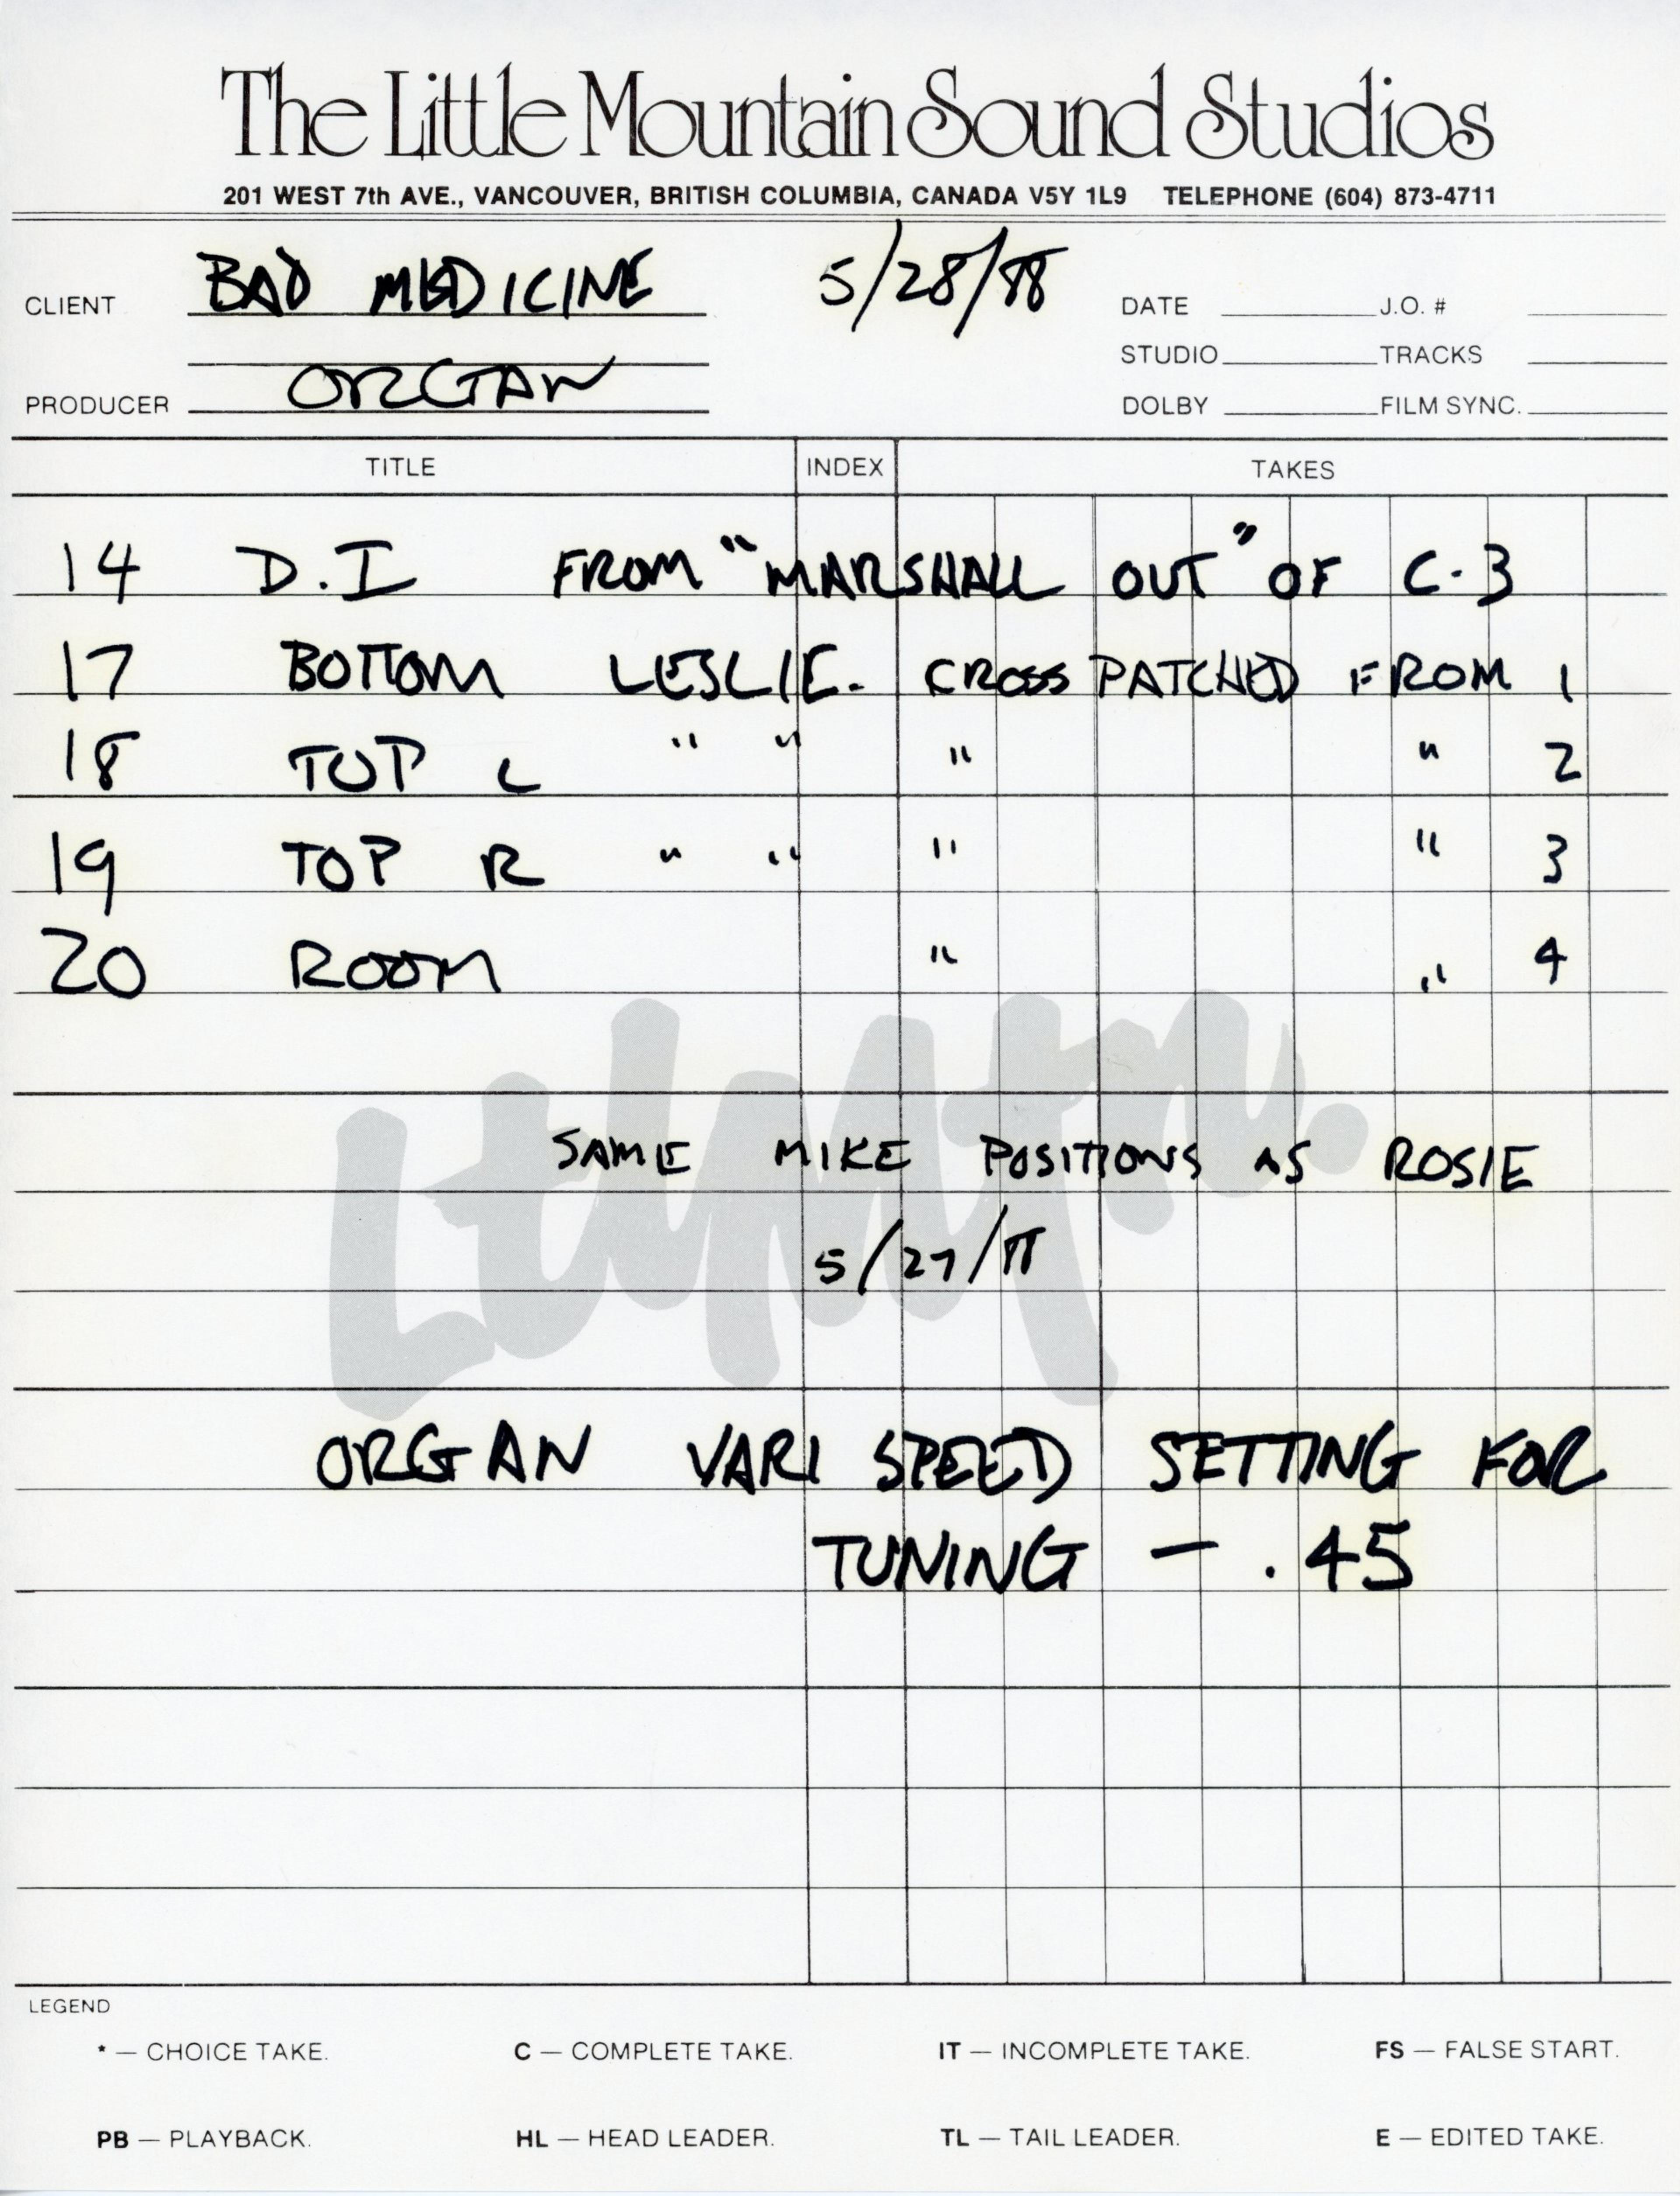 The Little Mountain Sound Studios
201 WEST 7th AVE., VANCOUVER, BRITISH COLUMBIA, CANADA V5Y 1L9 TELEPHONE (604) 873-4711
CLIENT BAD MEDICINE 5/28/88 DATE J.O. #
STUDIO TRACKS
PRODUCER ORGAN DOLBY FILM SYNC.
TITLE INDEX TAKES
14 D.I FROM "MARSHALL OUT" OF C-3
17 BOTTOM LESLIE. CROSS PATCHED FROM 1
18 TOP L " " " " 2
19 TOP R " " " " 3
20 ROOM " " 4
Ltl Mtn.
SAME MIKE POSITIONS AS ROSIE
5/27/88
ORGAN VARI SPEED SETTING FOR
TUNING - .45
LEGEND
* — CHOICE TAKE. C — COMPLETE TAKE. IT — INCOMPLETE TAKE. FS — FALSE START.
PB — PLAYBACK. HL — HEAD LEADER. TL — TAIL LEADER. E — EDITED TAKE.